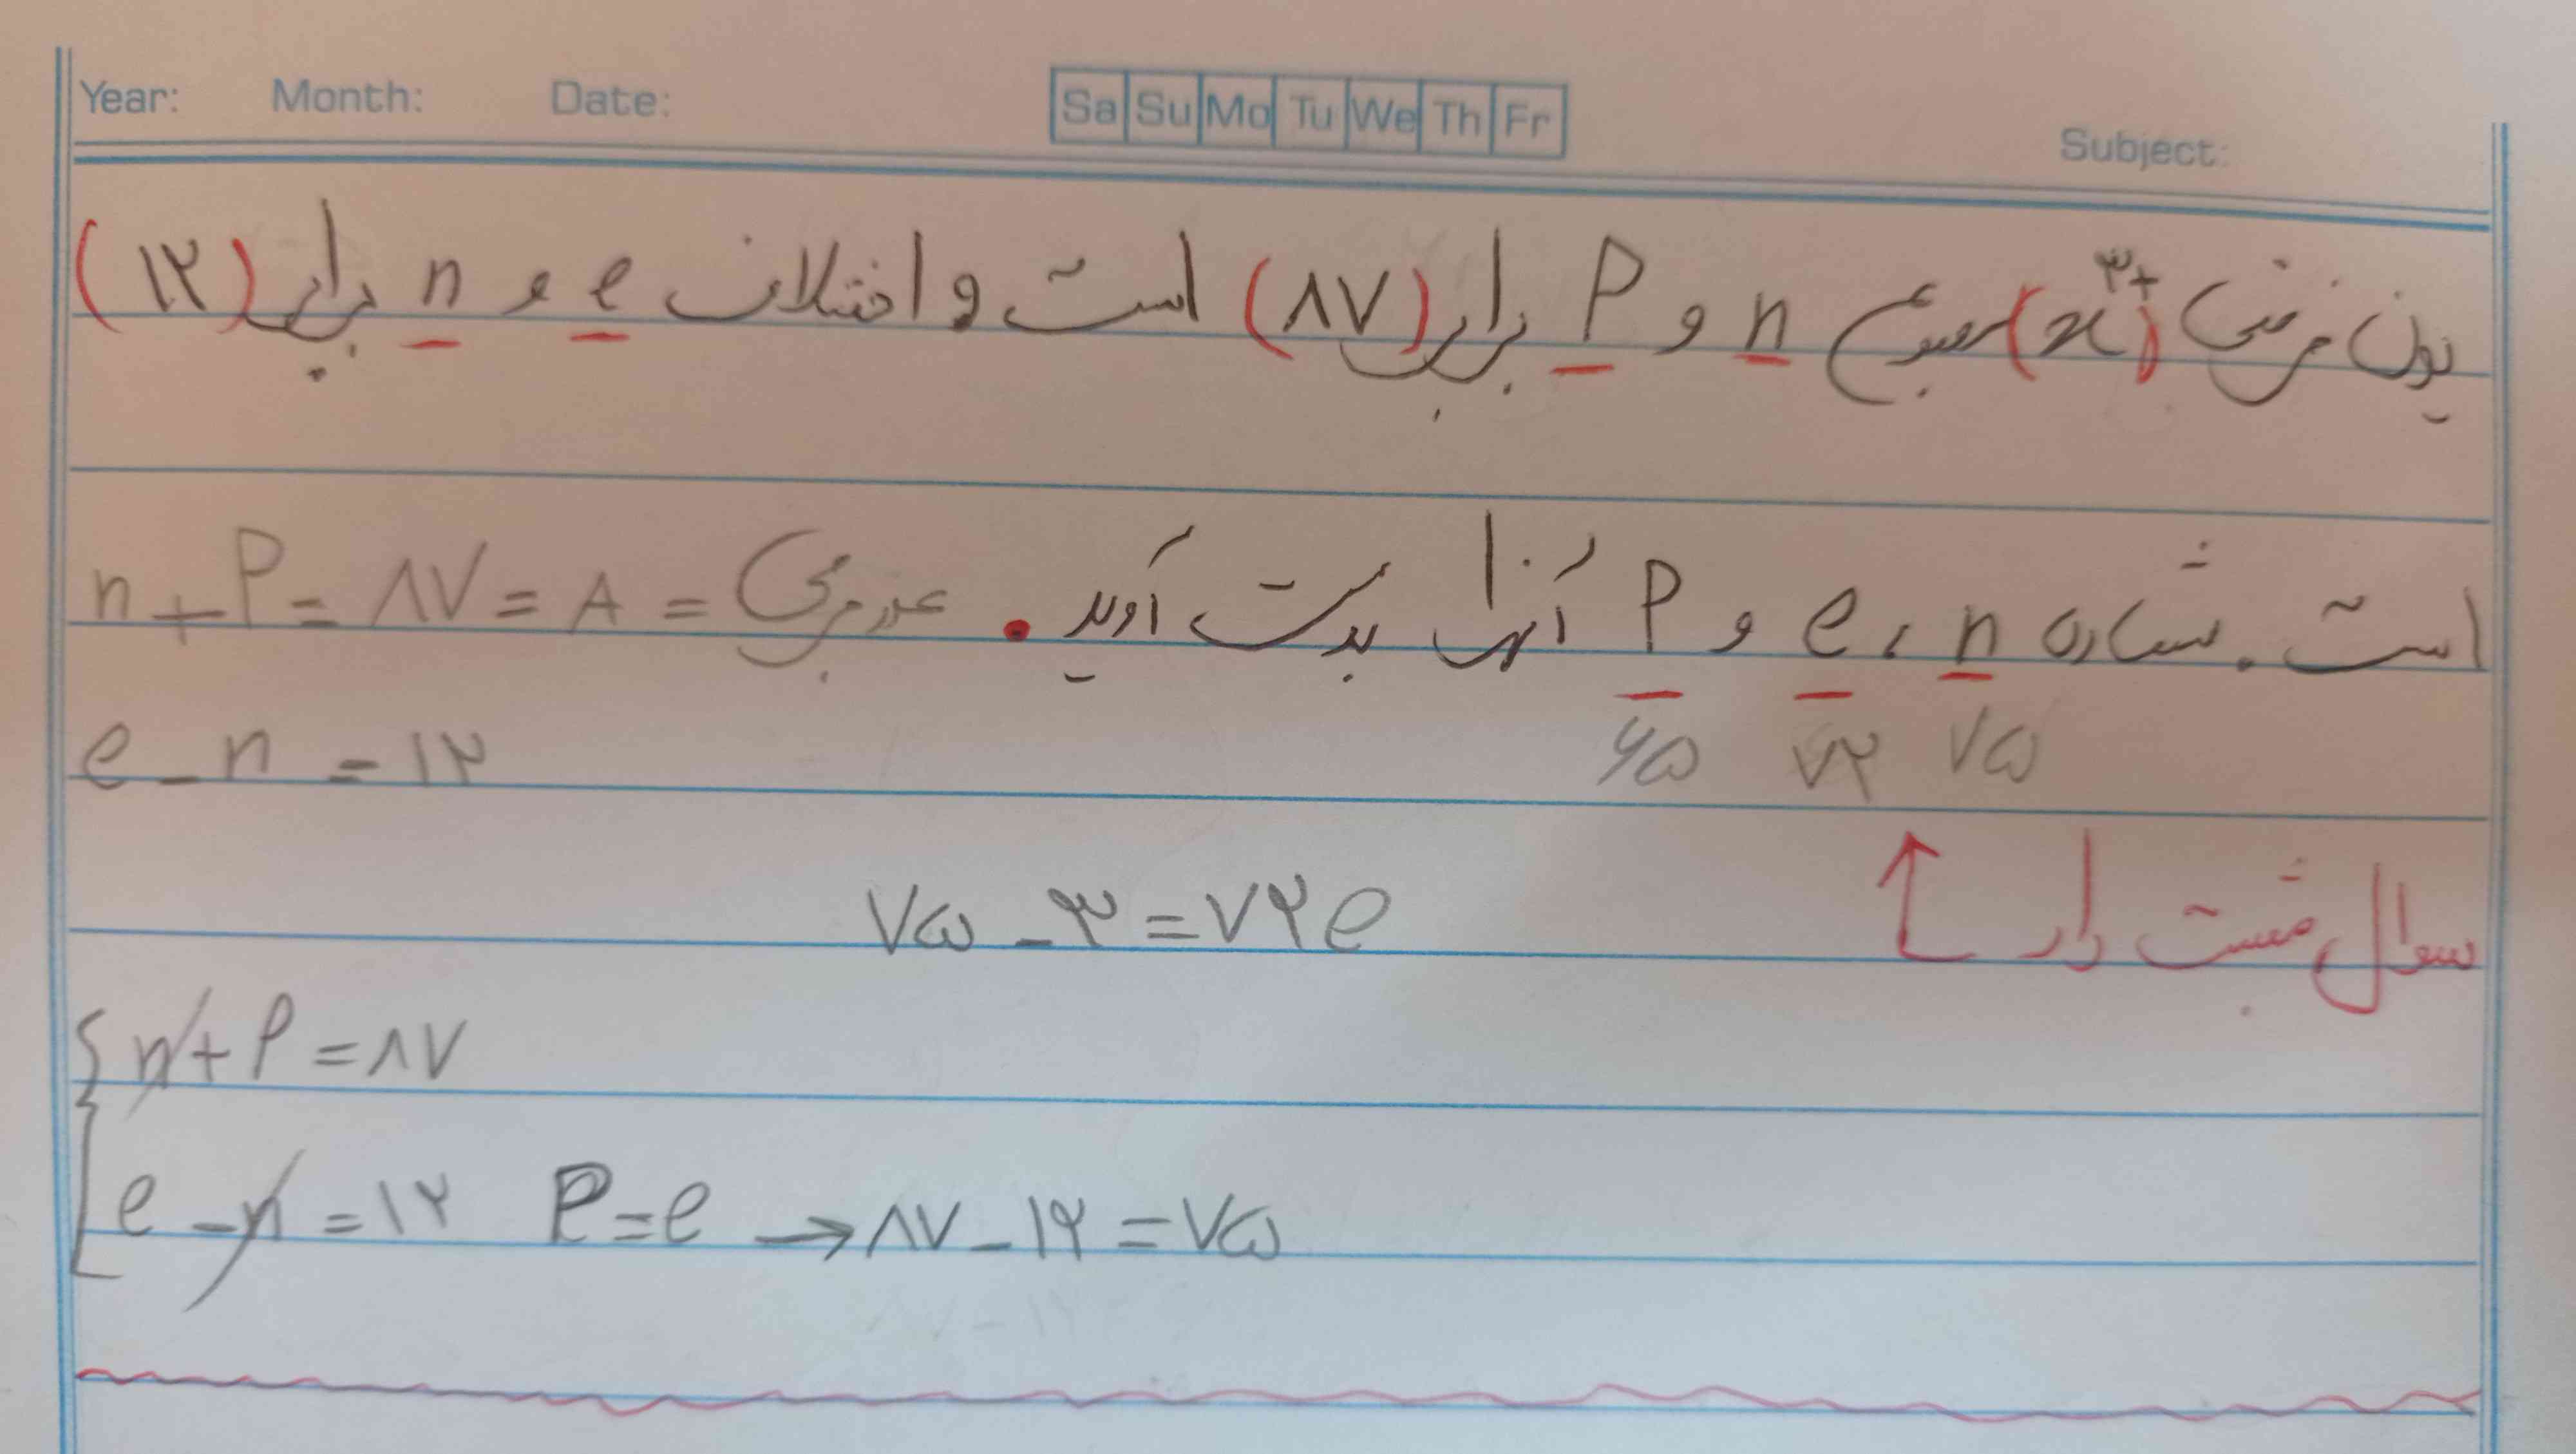 Year: Month: Date: Sa Su Mo Tu We Th Fr Subject:
یون فرضی (x³⁺) مجموع n و P برابر (۸۷) است و اختلاف e و n برابر (۱۲)
است. شماره n ، e و P آنها را بدست آورید. عدد جرمی = n + P = ۸۷ = A
e - n = ۱۲
۷۵ ۷۲ ۶۵
سوال مثبت دار ↑
۷۵ - ۳ = ۷۲ e
n + P = ۸۷
e - n = ۱۲ P = e → ۸۷ - ۱۲ = ۷۵